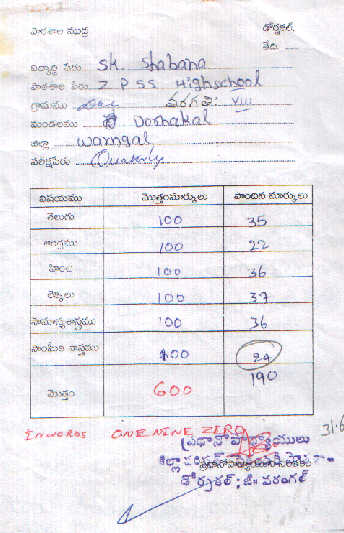 పాఠశాల ముద్ర డోర్నకల్.
తేది.
విద్యార్థి పేరు SK Shabana
పాఠశాల పేరు Z P S S Highschool
గ్రామము తరగతి: VIII
మండలము Dornakal
జిల్లా Warangal
పరీక్షపేరు Quaterly
విషయము మొత్తంమార్కులు పొందిన మార్కులు
తెలుగు 100 35
ఆంగ్లము 100 22
హింది 100 36
లెక్కలు 100 37
సామాన్యశాస్త్రము 100 36
సాంఘిక శాస్త్రము 100 24
మొత్తం 600 190
In words ONE NINE ZERO
ప్రధానోపాధ్యాయులు
డోర్నకల్; జి॥ వరంగల్